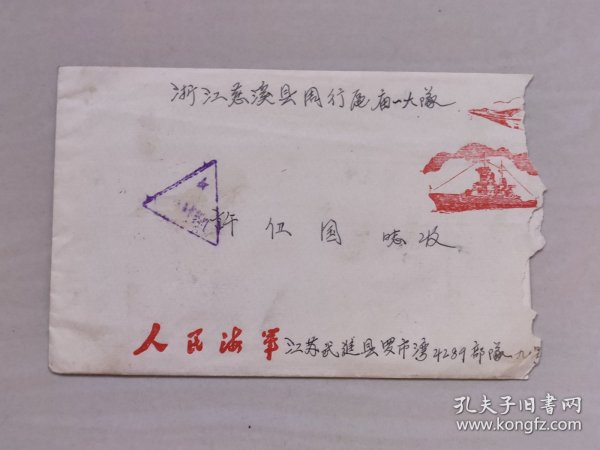 浙江慈溪县周行区庙一大隊
許伍国 誌收
人民海军 江苏武進县罗市湾4289部隊九
孔夫子旧书网
www.kongfz.com